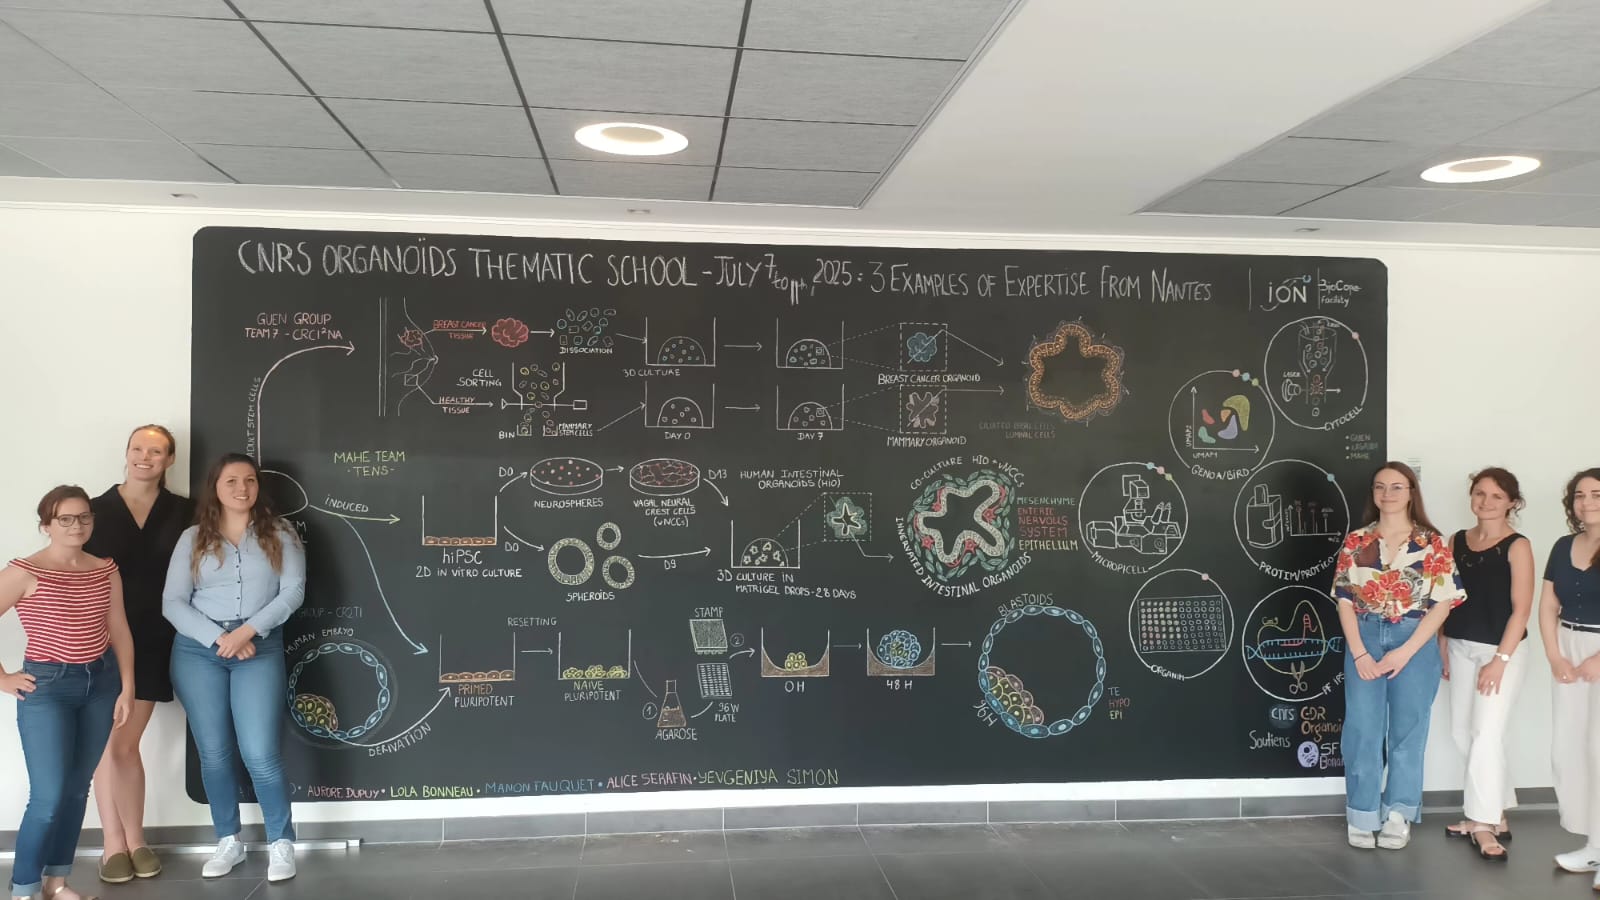 CNRS ORGANOÏDS THEMATIC SCHOOL - JULY 7 to 11th, 2025 : 3 EXAMPLES OF EXPERTISE FROM NANTES
iON
Facility
GUEN GROUP
TEAM 7 - CRCI²NA
ADULT STEM CELLS
BREAST CANCER
TISSUE
DISSOCIATION
CELL
SORTING
HEALTHY
TISSUE
BIN
MAMMARY
STEM CELLS
3D CULTURE
DAY 0
DAY 7
BREAST CANCER ORGANOID
MAMMARY ORGANOID
LUMINAL CELLS
MAHE TEAM
-TENS-
INDUCED
hiPSC
2D IN VITRO CULTURE
D0
D0
NEUROSPHERES
VAGAL NEURAL
CREST CELLS
(vNCCs)
D13
SPHEROÏDS
D9
HUMAN INTESTINAL
ORGANOÏDS (HIO)
3D CULTURE IN
MATRIGEL DROPS - 28 DAYS
CO-CULTURE HIO + vNCCs
INNERVATED INTESTINAL ORGANOIDS
MESENCHYME
ENTERIC
NERVOUS
SYSTEM
EPITHELIUM
GROUP - CR2TI
HUMAN EMBRYO
DERIVATION
PRIMED
PLURIPOTENT
RESETTING
NAIVE
PLURIPOTENT
1
AGAROSE
STAMP
96W
PLATE
2
0H
48H
BLASTOIDS
96H
TE
HYPO
EPI
LASER
CYTOCELL
UMAP2
UMAP1
GENOA/BIRD
• GUEN
• MAHE
MICROPICELL
PROTIM/PROTEO
ORGANIM
Cas9
cnrs GDR
Organoï
Soutiens
• AURORE DUPUY • LOLA BONNEAU • MANON FAUQUET • ALICE SERAFIN • YEVGENIYA SIMON